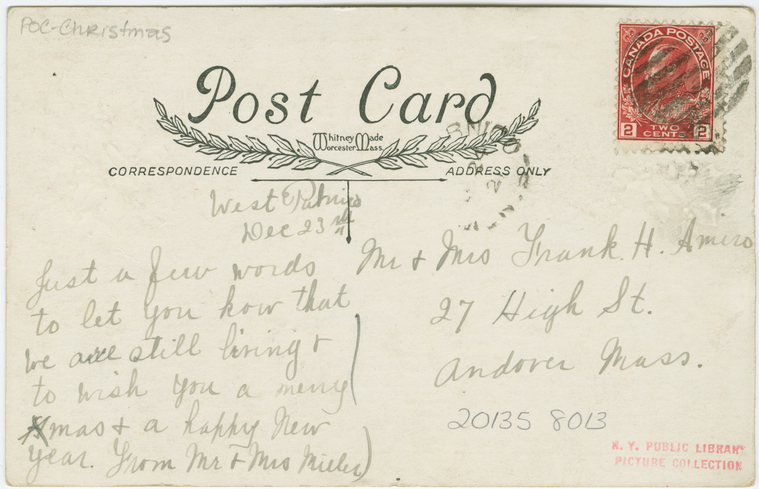 POC-Christmas
CANADA POSTAGE
2 TWO CENTS 2
Post Card
Whitney Made
Worcester Mass.
CORRESPONDENCE
ADDRESS ONLY
West
Dec 23rd
Just a few words
to let you know that
we are still living &
to wish you a merry
Xmas & a happy New
year. From Mr & Mrs Miller
Mr & Mrs Frank. H. Amiro
27 High St.
Andover Mass.
20135 8013
N. Y. PUBLIC LIBRARY
PICTURE COLLECTION